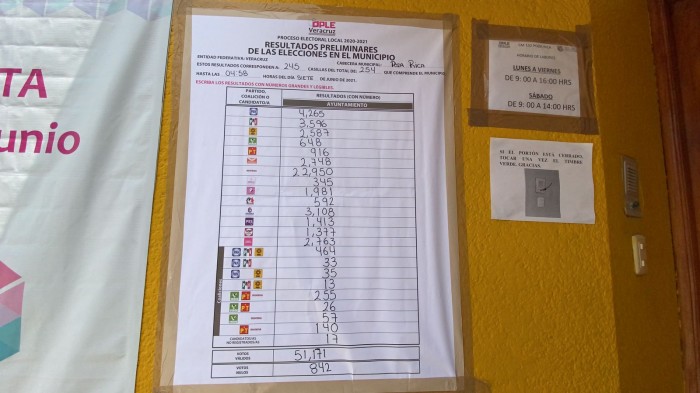 TA
unio
OPLE
Veracruz
PROCESO ELECTORAL LOCAL 2020-2021
RESULTADOS PRELIMINARES
DE LAS ELECCIONES EN EL MUNICIPIO
ENTIDAD FEDERATIVA: VERACRUZ CABECERA MUNICIPAL: Poza Rica
ESTOS RESULTADOS CORRESPONDEN A: 245 CASILLAS DEL TOTAL DE: 254 QUE COMPRENDE EL MUNICIPIO
HASTA LAS 04:58 HORAS DEL DÍA SIETE DE JUNIO DE 2021.
ESCRIBA LOS RESULTADOS CON NÚMEROS GRANDES Y LEGIBLES.
PARTIDO, COALICIÓN O CANDIDATO/A
RESULTADOS (CON NÚMERO)
AYUNTAMIENTO
4,265
3,596
2,587
648
916
2,748
22,950
345
1,981
592
3,108
1,413
1,377
2,763
464
33
35
13
255
26
57
140
CANDIDATOS/AS NO REGISTRADOS/AS 17
VOTOS VÁLIDOS 51,171
VOTOS NULOS 842
LUNES A VIERNES
DE 9:00 A 16:00 HRS
SÁBADO
DE 9:00 A 14:00 HRS
SI EL PORTÓN ESTA CERRADO,
TOCAR UNA VEZ EL TIMBRE
VERDE. GRACIAS.